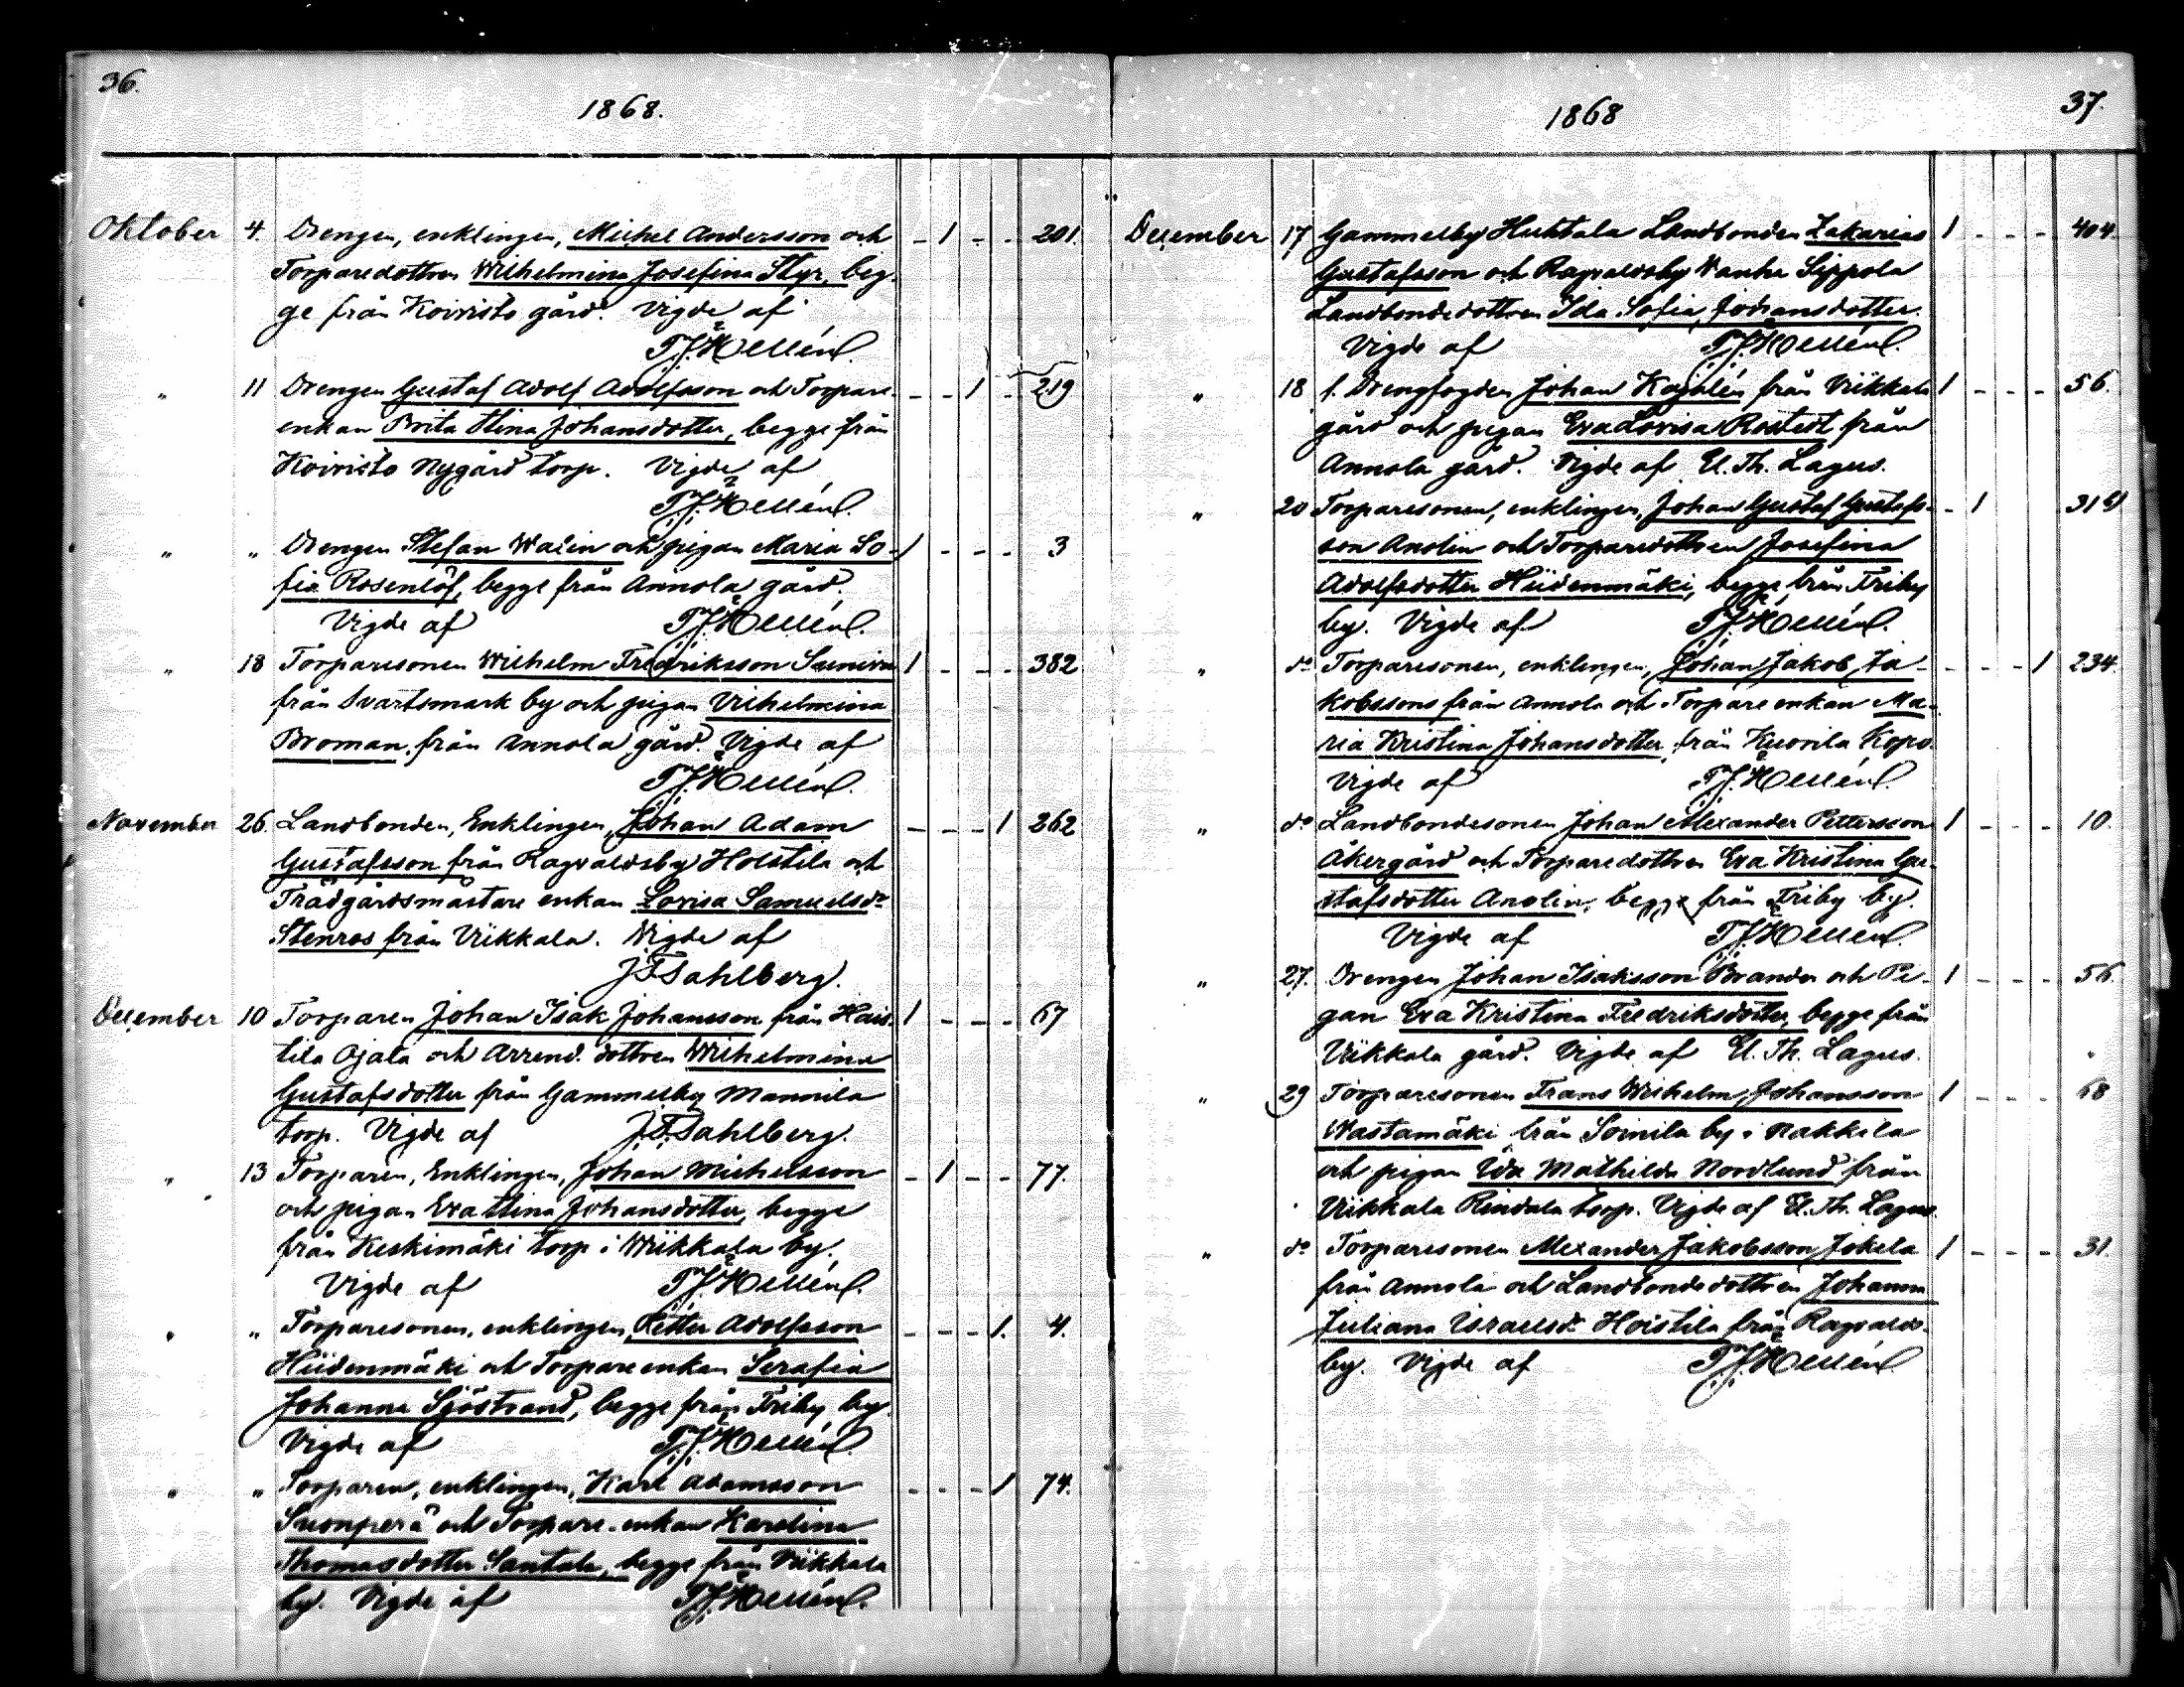 36.
1868.
Oktober 4. Drengen, enklingen, Michel Andersson och - 1 - - 201.
Torparedottren Wilhelmina Josefina Styr, beg-
ge från Koivisto gård. Vigde af
T. J. Hellén.
" 11 Drengen Gustaf Adolf Adolfsson och Torpare- - - 1 - 219
enkan Brita Stina Johansdotter, begge från
Koivisto Nygård torp. Vigde af
T. J. Hellén.
" " Drengen Stefan Walin och pigan Maria So- 1 - - - 3
fia Rosenlöf, begge från Annola gård.
Vigde af T. J. Hellén.
" 18 Torparesonen Wilhelm Fredriksson 1 - - - 382
från Svartsmark by och pigan Vilhelmina
Broman, från Annola gård. Vigde af
T. J. Hellén.
November 26. Landbonden, Enklingen, Johan Adam - - - 1 262
Gustafsson från Ragvaldsby Hoistila och
Trädgårdsmästare enkan Lovisa Samuelsdr
Stenros från Viikkala. Vigde af
J. F. Sahlberg.
December 10 Torparen Johan Isak Johansson från Hais- 1 - - - 67
tila Ojala och Arrend. dottren Wilhelmina
Gustafsdotter från Gammelby Mannila
torp. Vigde af J. F. Sahlberg.
" 13 Torparen, Enklingen, Johan Michelsson - 1 - - 77.
och pigan Eva Stina Johansdotter, begge
från Keskimäki torp i Wiikkala by.
Vigde af T. J. Hellén.
" " Torparesonen, enklingen, Petter Adolfsson - - - 1. 4.
Hiidenmäki och Torpare enkan Serafia
Johanna Sjöstrand, begge från Friby by.
Vigde af T. J. Hellén.
" " Torparen, enklingen, Karl Adamsson - - - 1 74.
Suonperä och Torpare-enkan Karolina
Thomasdotter Santala, begge från Viikkala
by. Vigde af T. J. Hellén.
37.
1868
December 17 Gammelby Huhtala Landbonden Zakarias 1 - - - 404.
Gustafsson och Ragvaldsby Wanha Sippola
Landbondedottren Ida Sofia Johansdotter.
Vigde af T. J. Hellén.
" 18 f. Drengfogden Johan Kajalén från Viikkala 1 - - - 56.
gård och pigan Eva Lovisa Rostedt från
Annola gård. Vigde af El. Th. Lagus.
" 20 Torparesonen, enklingen, Johan Gustaf Gustafs- - 1
son Anolin och Torparedottren Josefina
Adolfsdotter Hiidenmäki, begge från Friby
by. Vigde af T. J. Hellén.
" do Torparesonen, enklingen, Johan Jakob Ja- - - - 1 234.
kobssons från Annola och Torpare enkan Ma-
ria Kristina Johansdotter från Kuorila
Vigde af T. J. Hellén.
" do Landbondesonen Johan Alexander Pettersson 1 - - - 10.
Åkergård och Torparedottren Eva Kristina Gu-
stafsdotter Anolin, begge från Friby by.
Vigde af T. J. Hellén.
" 27. Drengen Johan Isaksson Brander och Pi- 1 - - - 56.
gan Eva Kristina Fredriksdotter, begge från
Viikkala gård. Vigde af El. Th. Lagus.
" 29 Torparesonen Frans Wilhelm Johansson 1 - - - 68
Wastamäki från Soinila by i Nakkila
och pigan Ida Mathilda Nordlund från
Viikkala Rindala torp. Vigde af El. Th. Lagus.
" do Torparesonen Alexander Jakobsson Jokela 1 - - - 31.
från Annola och Landbonde dottren Johanna
Juliana Israelsdr Hoistila från Ragvalds-
by. Vigde af T. J. Hellén.